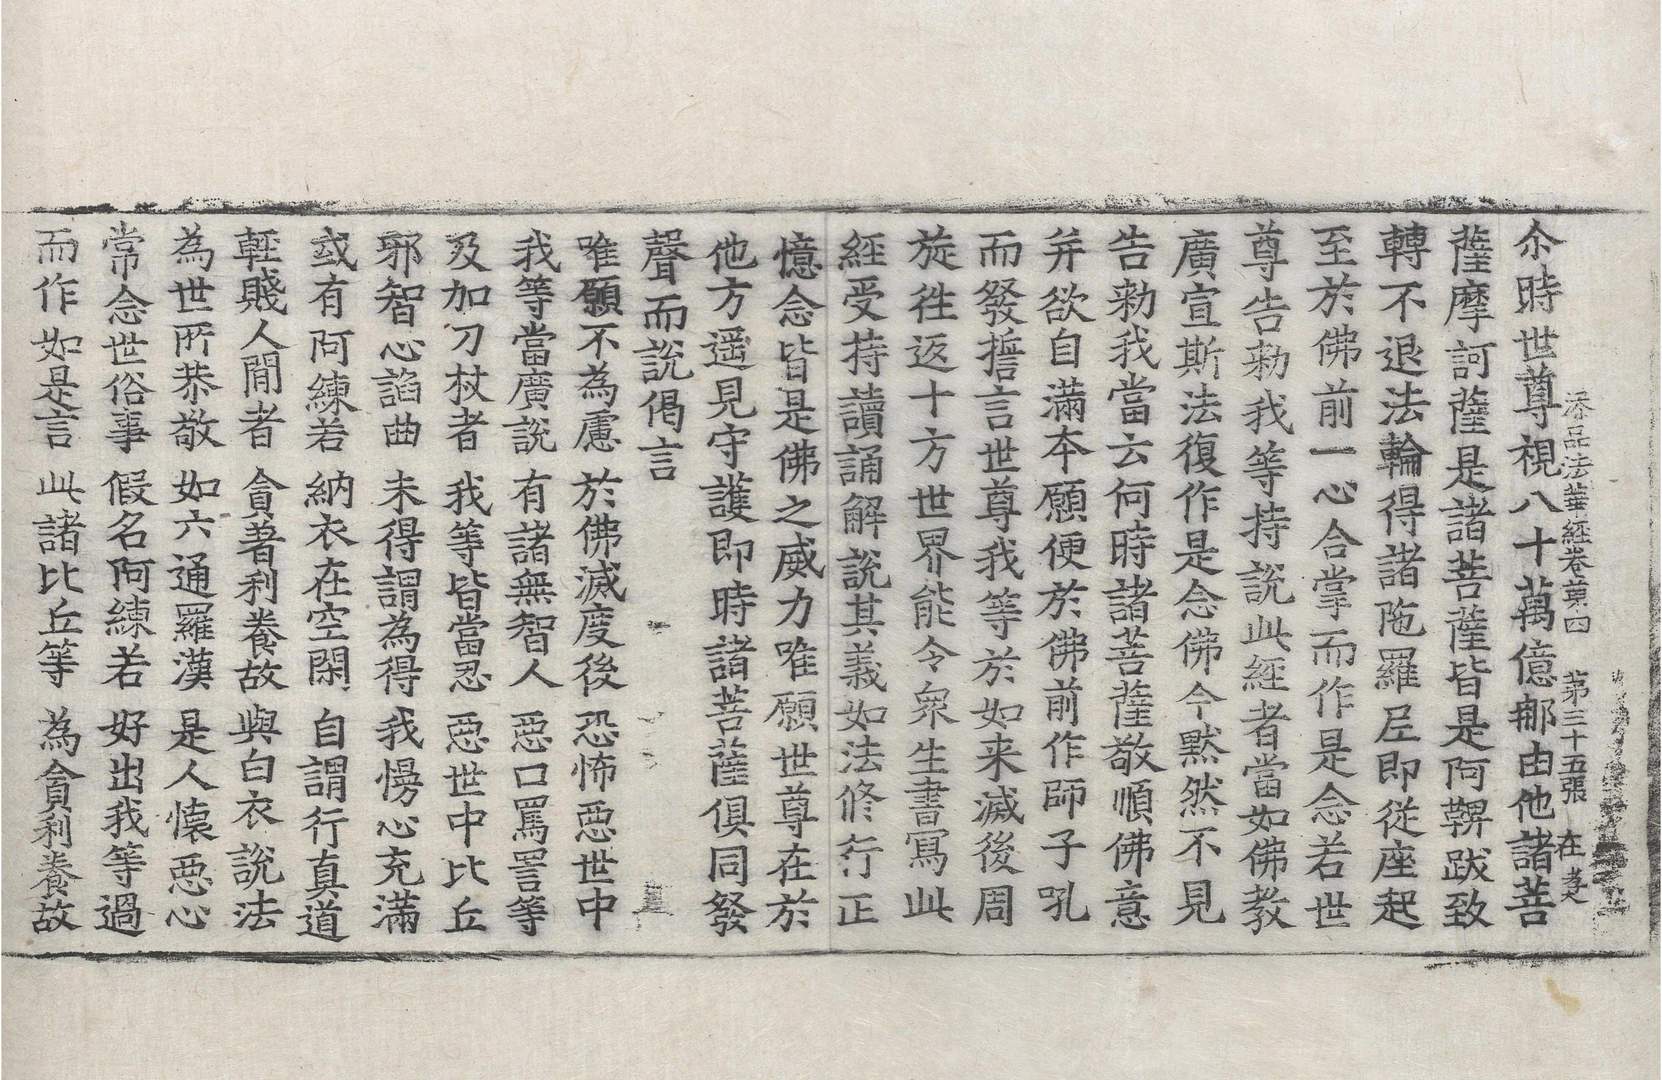 添品法華經卷第四　第三十五張　在
尒時世尊視八十萬億那由他諸菩
薩摩訶薩是諸菩薩皆是阿鞞跋致
轉不退法輪得諸陁羅尼即從座起
至於佛前一心合掌而作是念若世
尊告勑我等持說此經者當如佛教
廣宣斯法復作是念佛今默然不見
告勑我當云何時諸菩薩敬順佛意
并欲自滿本願便於佛前作師子吼
而發誓言世尊我等於如来滅後周
旋往返十方世界能令衆生書寫此
經受持讀誦解說其義如法修行正
憶念皆是佛之威力唯願世尊在於
他方遥見守護即時諸菩薩俱同發
聲而說偈言
唯願不為慮　於佛滅度後　恐怖惡世中
我等當廣說　有諸無智人　惡口罵詈等
及加刀杖者　我等皆當忍　惡世中比丘
邪智心諂曲　未得謂為得　我慢心充滿
或有阿練若　納衣在空閑　自謂行真道
輕賤人閒者　貪著利養故　與白衣說法
為世所恭敬　如六通羅漢　是人懷惡心
常念世俗事　假名阿練若　好出我等過
而作如是言　此諸比丘等　為貪利養故